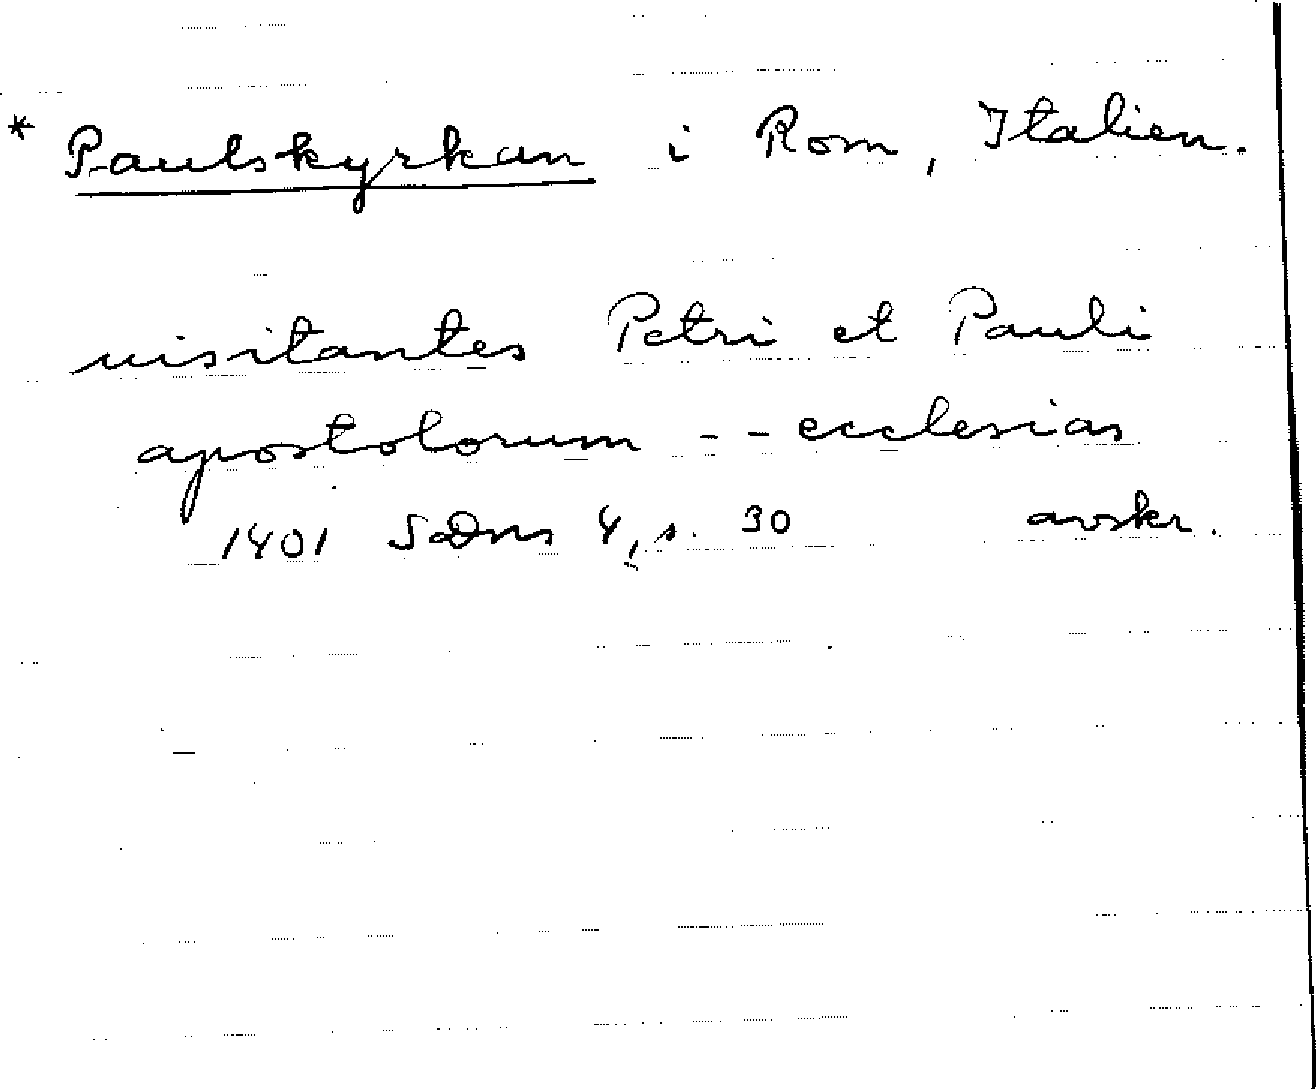 * Paulskyrkan i Rom, Italien.
uisitantes Petri et Pauli
apostolorum - - ecclesias
1401 SDns 4, s. 30 avskr.